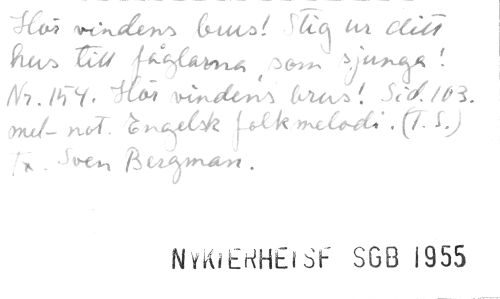 Hör vindens brus! Stig ur ditt
hus till fåglarna, som sjunga!
Nr. 154. Hör vindens brus! Sid. 103.
mel-not. Engelsk folkmelodi. (T.S.)
Tx. Sven Bergman.
NYKTERHETSF SGB 1955